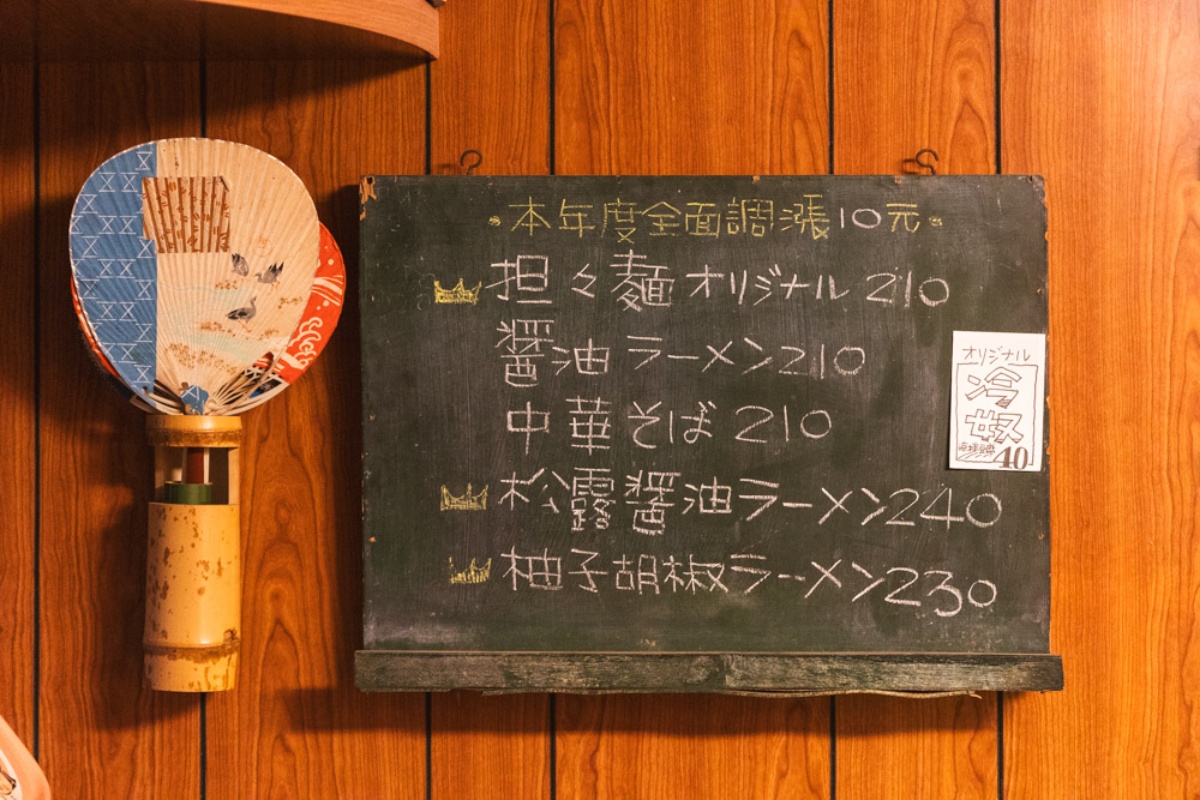 本年度全面調漲10元
担々麺オリジナル 210
醤油 ラーメン210
中華そば 210
松露醤油ラーメン240
柚子胡椒ラーメン230
オリジナル
冷
奴
40